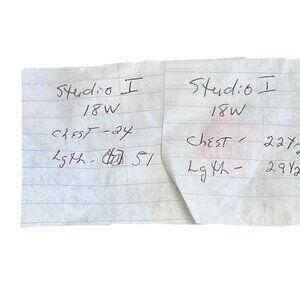 Studio I
18W
Chest - 24
Lgth - 51
Studio I
18W
Chest - 22½
Lgth - 29½